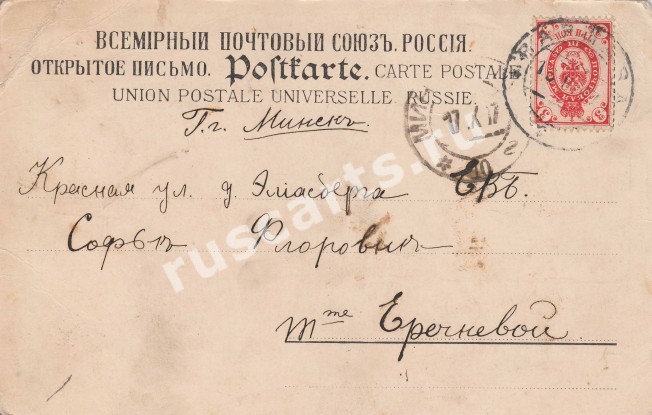 ВСЕМІРНЫЙ ПОЧТОВЫЙ СОЮЗЪ. РОССІЯ.
ОТКРЫТОЕ ПИСЬМО. Postkarte. CARTE POSTALE
UNION POSTALE UNIVERSELLE. RUSSIE.
Г.г. Минскъ
Красная ул. д. Эліасберга ЕВБ.
Софьѣ Флоровнѣ
Mme Еречневой
17 X
russarts.ru